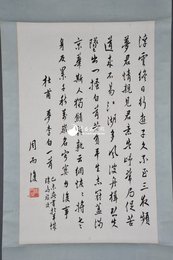 浮雲終日行遊子久不至三夜頻
夢君情親見君意告歸常局促苦
道来不易江湖多風波舟楫恐失
墜出門搔白首若負平生志冠蓋滿
京華斯人獨憔悴孰云網恢恢將老
身反累千秋萬歲名寂寞身後事
杜甫 夢李白一首
周而復